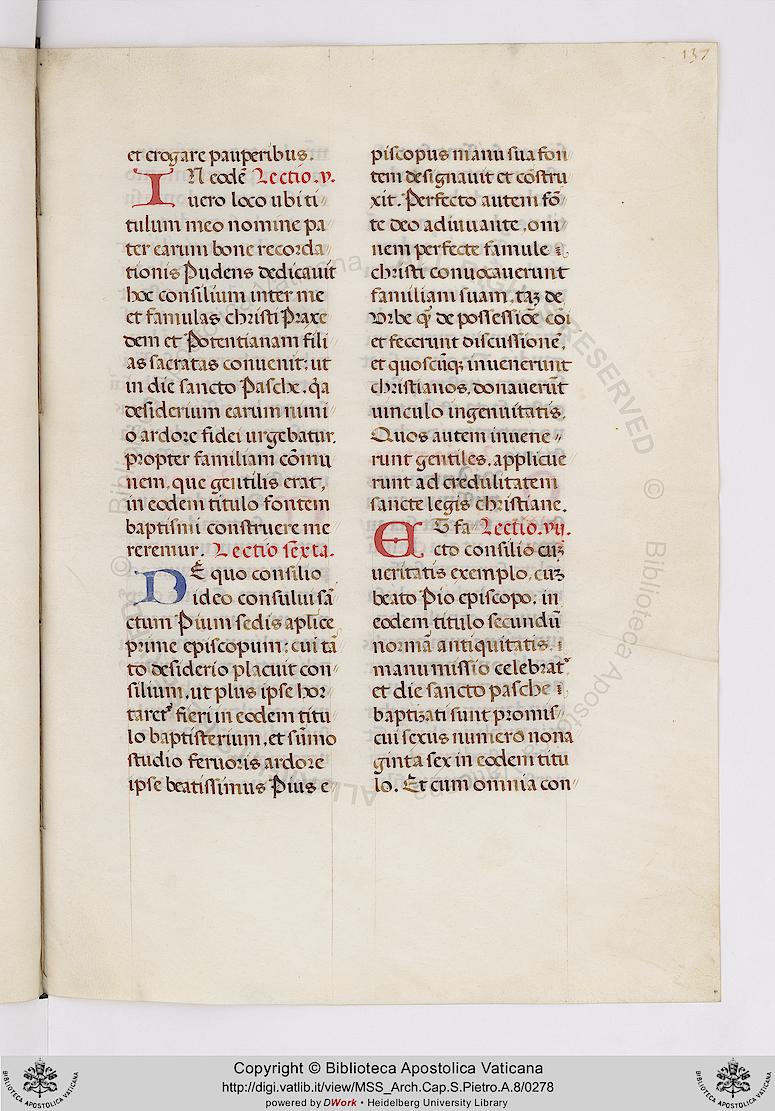 137
et erogare pauperibus.
IN eodē Lectio .v.
uero loco ubi ti
tulum meo nomine pa
ter earum bone recorda
tionis Pudens dedicauit
hoc consilium inter me
et famulas christi Praxe
dem et Potentianam fili
as sacratas conuenit: ut
in die sancto Pasche. q̄a
desiderium earum nimi
o ardore fidei urgebatur.
propter familiam cōmu
nem, que gentilis erat,
in eodem titulo fontem
baptismi construere me
reremur. Lectio sexta.
DE quo consilio
ideo consului sā
ctum Pium sedis aplīce
prime episcopum: cui tā
to desiderio placuit con
silium, ut plus ipse hor
taret᷑ fieri in eodem titu
lo baptisterium, et sūmo
studio feruoris ardore
ipse beatissimus Pius e
piscopus manu sua fon
tem designauit et cōstru
xit. Perfecto autem fō
te deo adiuuante, om
nem perfecte famule
christi conuocauerunt
familiam suam, taʒ de
Vrbe q̄ de possessiōe cōi
et fecerunt discussionē,
et quoscūqꝫ inuenerunt
christianos, donauerūt
uinculo ingenuitatis.
Quos autem inuene
runt gentiles, applicue
runt ad credulitatem
sancte legis christiane.
ET fa Lectio .vij.
cto consilio cuʒ
ueritatis exemplo, cuʒ
beato Pio episcopo, in
eodem titulo secundū
normā antiquitatis,
manumissio celebrat᷑
et die sancto pasche
baptizati sunt promis
cui sexus numero nona
ginta sex in eodem titu
lo. Et cum omnia con
Copyright © Biblioteca Apostolica Vaticana
http://digi.vatlib.it/view/MSS_Arch.Cap.S.Pietro.A.8/0278
powered by DWork • Heidelberg University Library
BIBLIOTECA APOSTOLICA VATICANA
BIBLIOTECA APOSTOLICA VATICANA